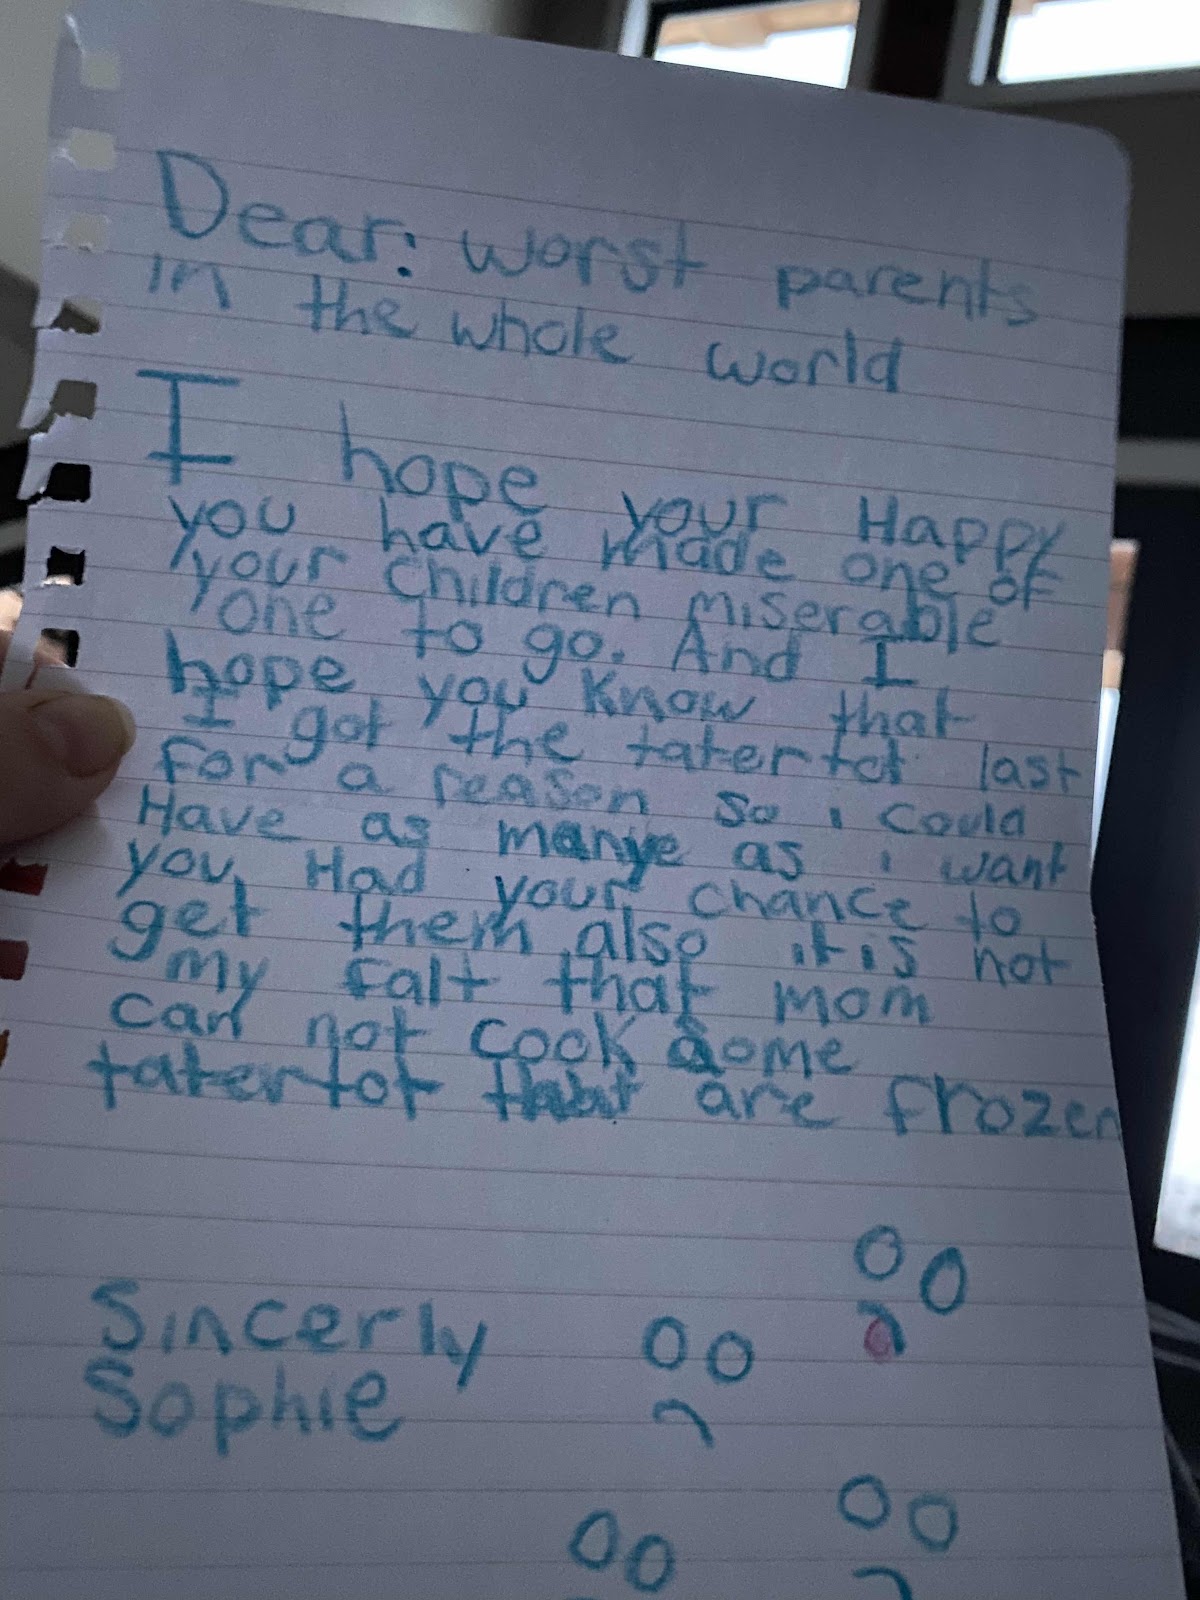 Dear: worst parents
in the whole world
I hope your Happy
you have made one of
your children miserable
one to go. And I
hope you know that
I got the tatertot last
for a reason so i could
Have as manye as i want
you Had your chance to
get them also it is not
my falt that mom
can not cook some
tatertot that are frozen
Sincerly
Sophie